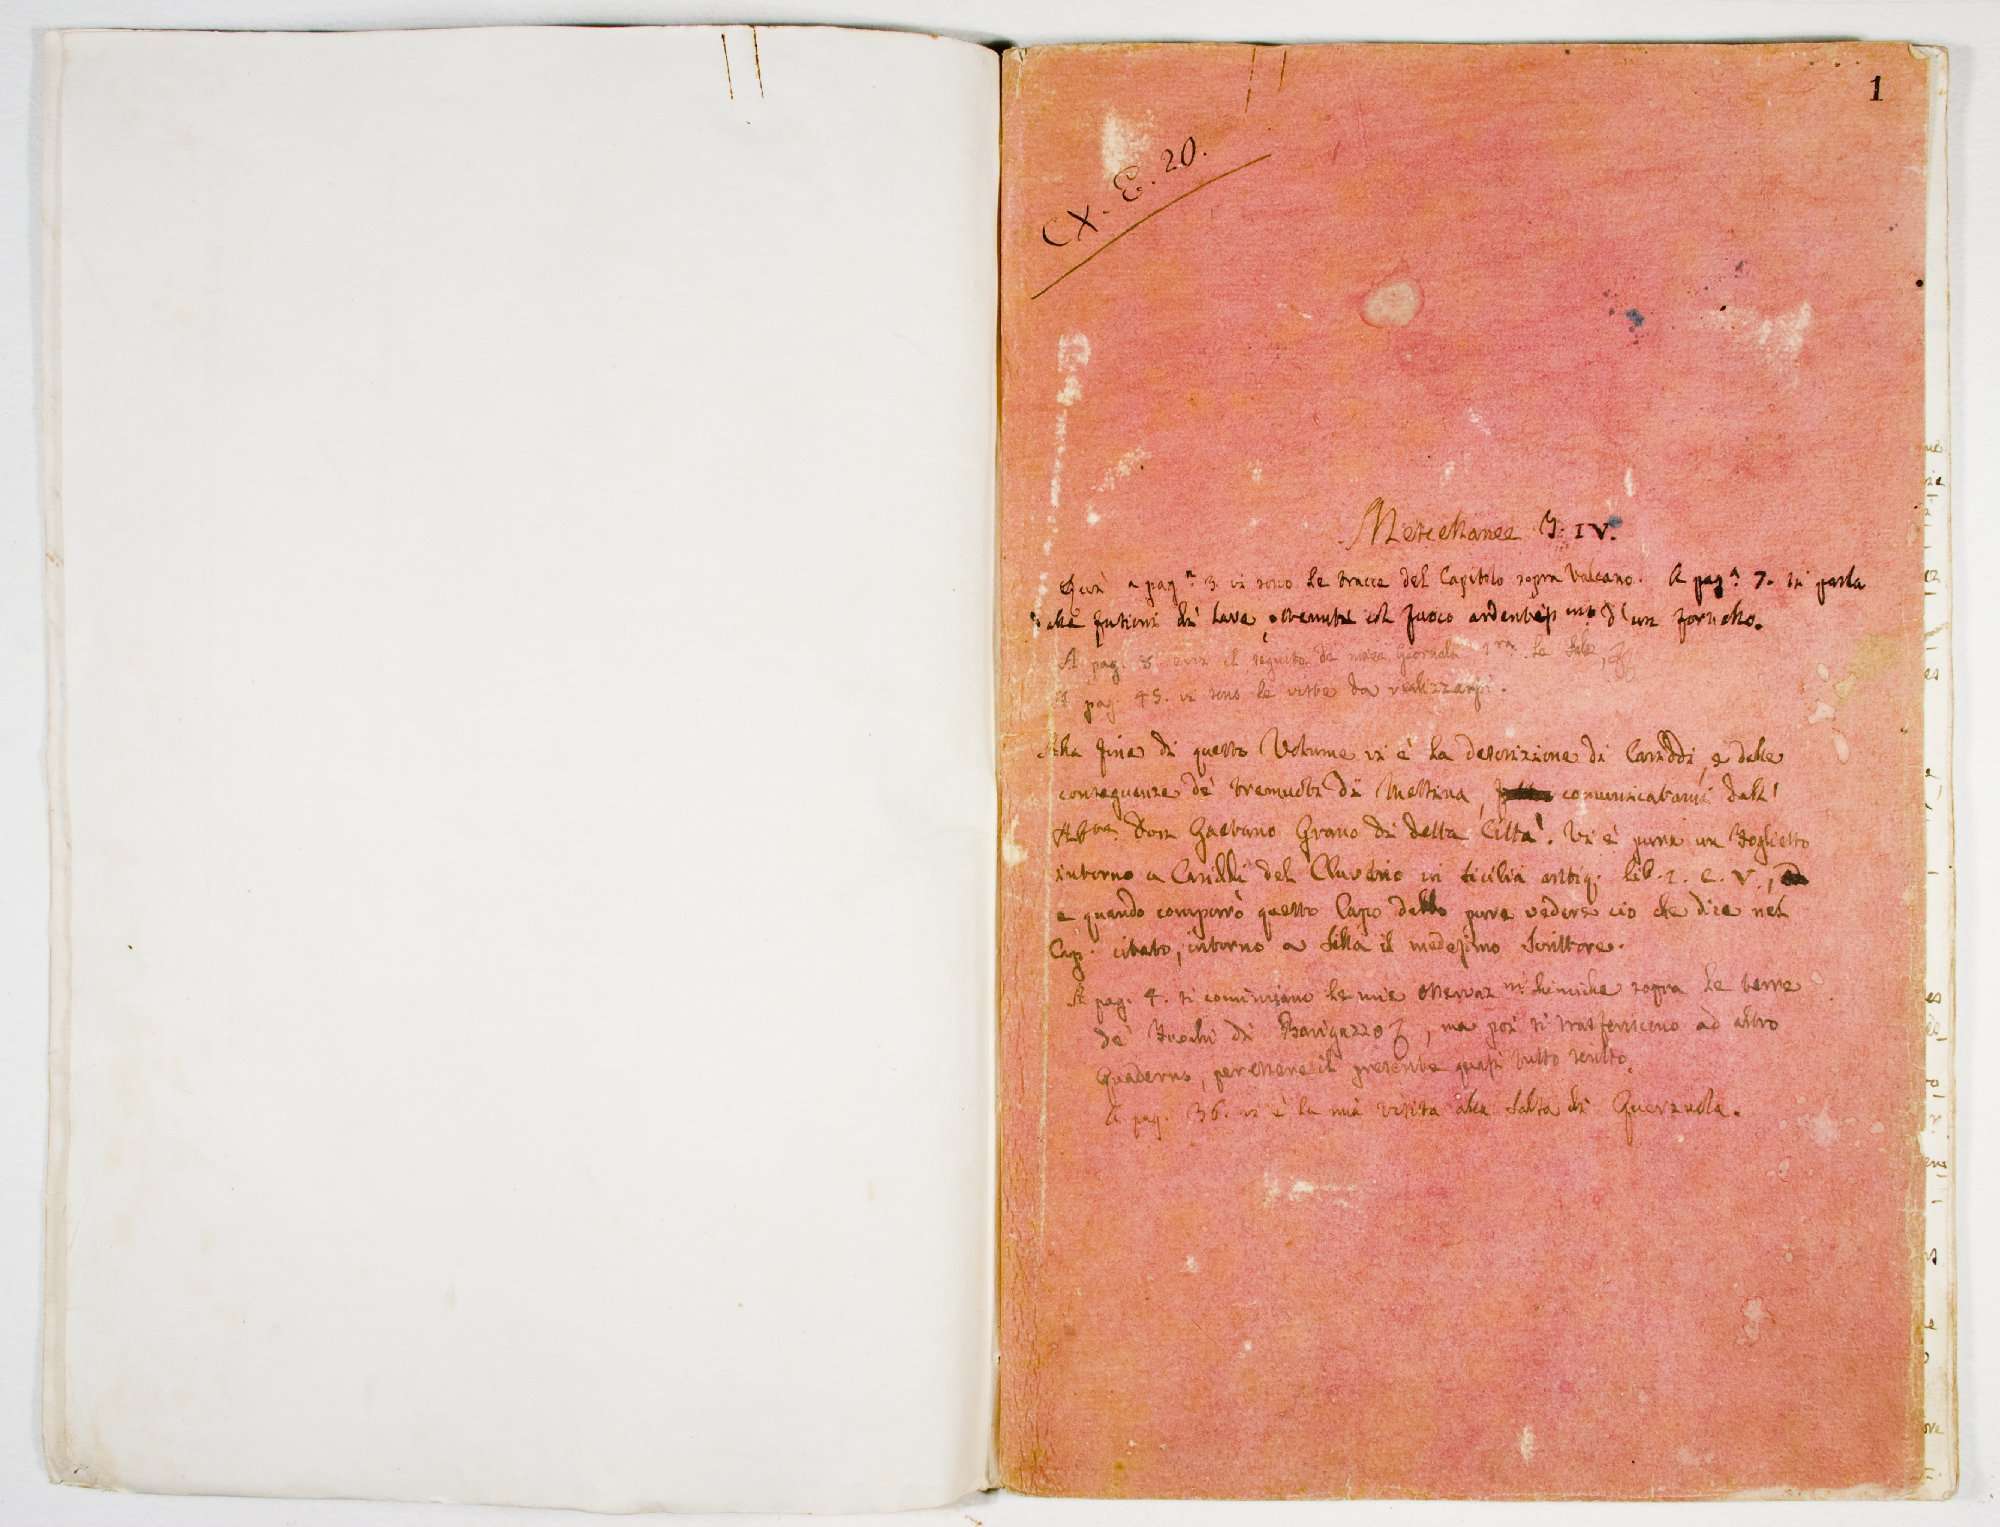 1
CX. E. 20.
Miscellanee T. IV.
Quì a pag.ª 3. vi sono le tracce del Capitolo sopra Vulcano. A pag.ª 7. si parla
alle fusioni di lave, ottenute col fuoco ardentissimo d'un fornello.
A pag. 8. il seguito de Giornale le
A pag. 45. vi sono le viste da realizzarsi.
Alla fine di questo Volume vi è la descrizione di Cariddi, e delle
conseguenze de' tremuoti di Messina, comunicatami dall'
Ab. Don Gaetano Grano di detta Città. Vi è pure un foglietto
intorno a Cariddi del Cluverio in Sicilia antiq. lib. 1. c. V.,
e quando comporrò questo Capo debbo pure vedere ciò che dice nel
Cap. citato, intorno a Scilla il medesimo Scrittore.
A pag. 4. si cominciano le mie chimiche sopra le terre
de' Fuochi di Barigazzo, ma poi si trasferiscono ad altro
Quaderno, per essere il presente quasi tutto scritto.
A pag. 36. vi è la mia visita alla Salsa di Querzuola.